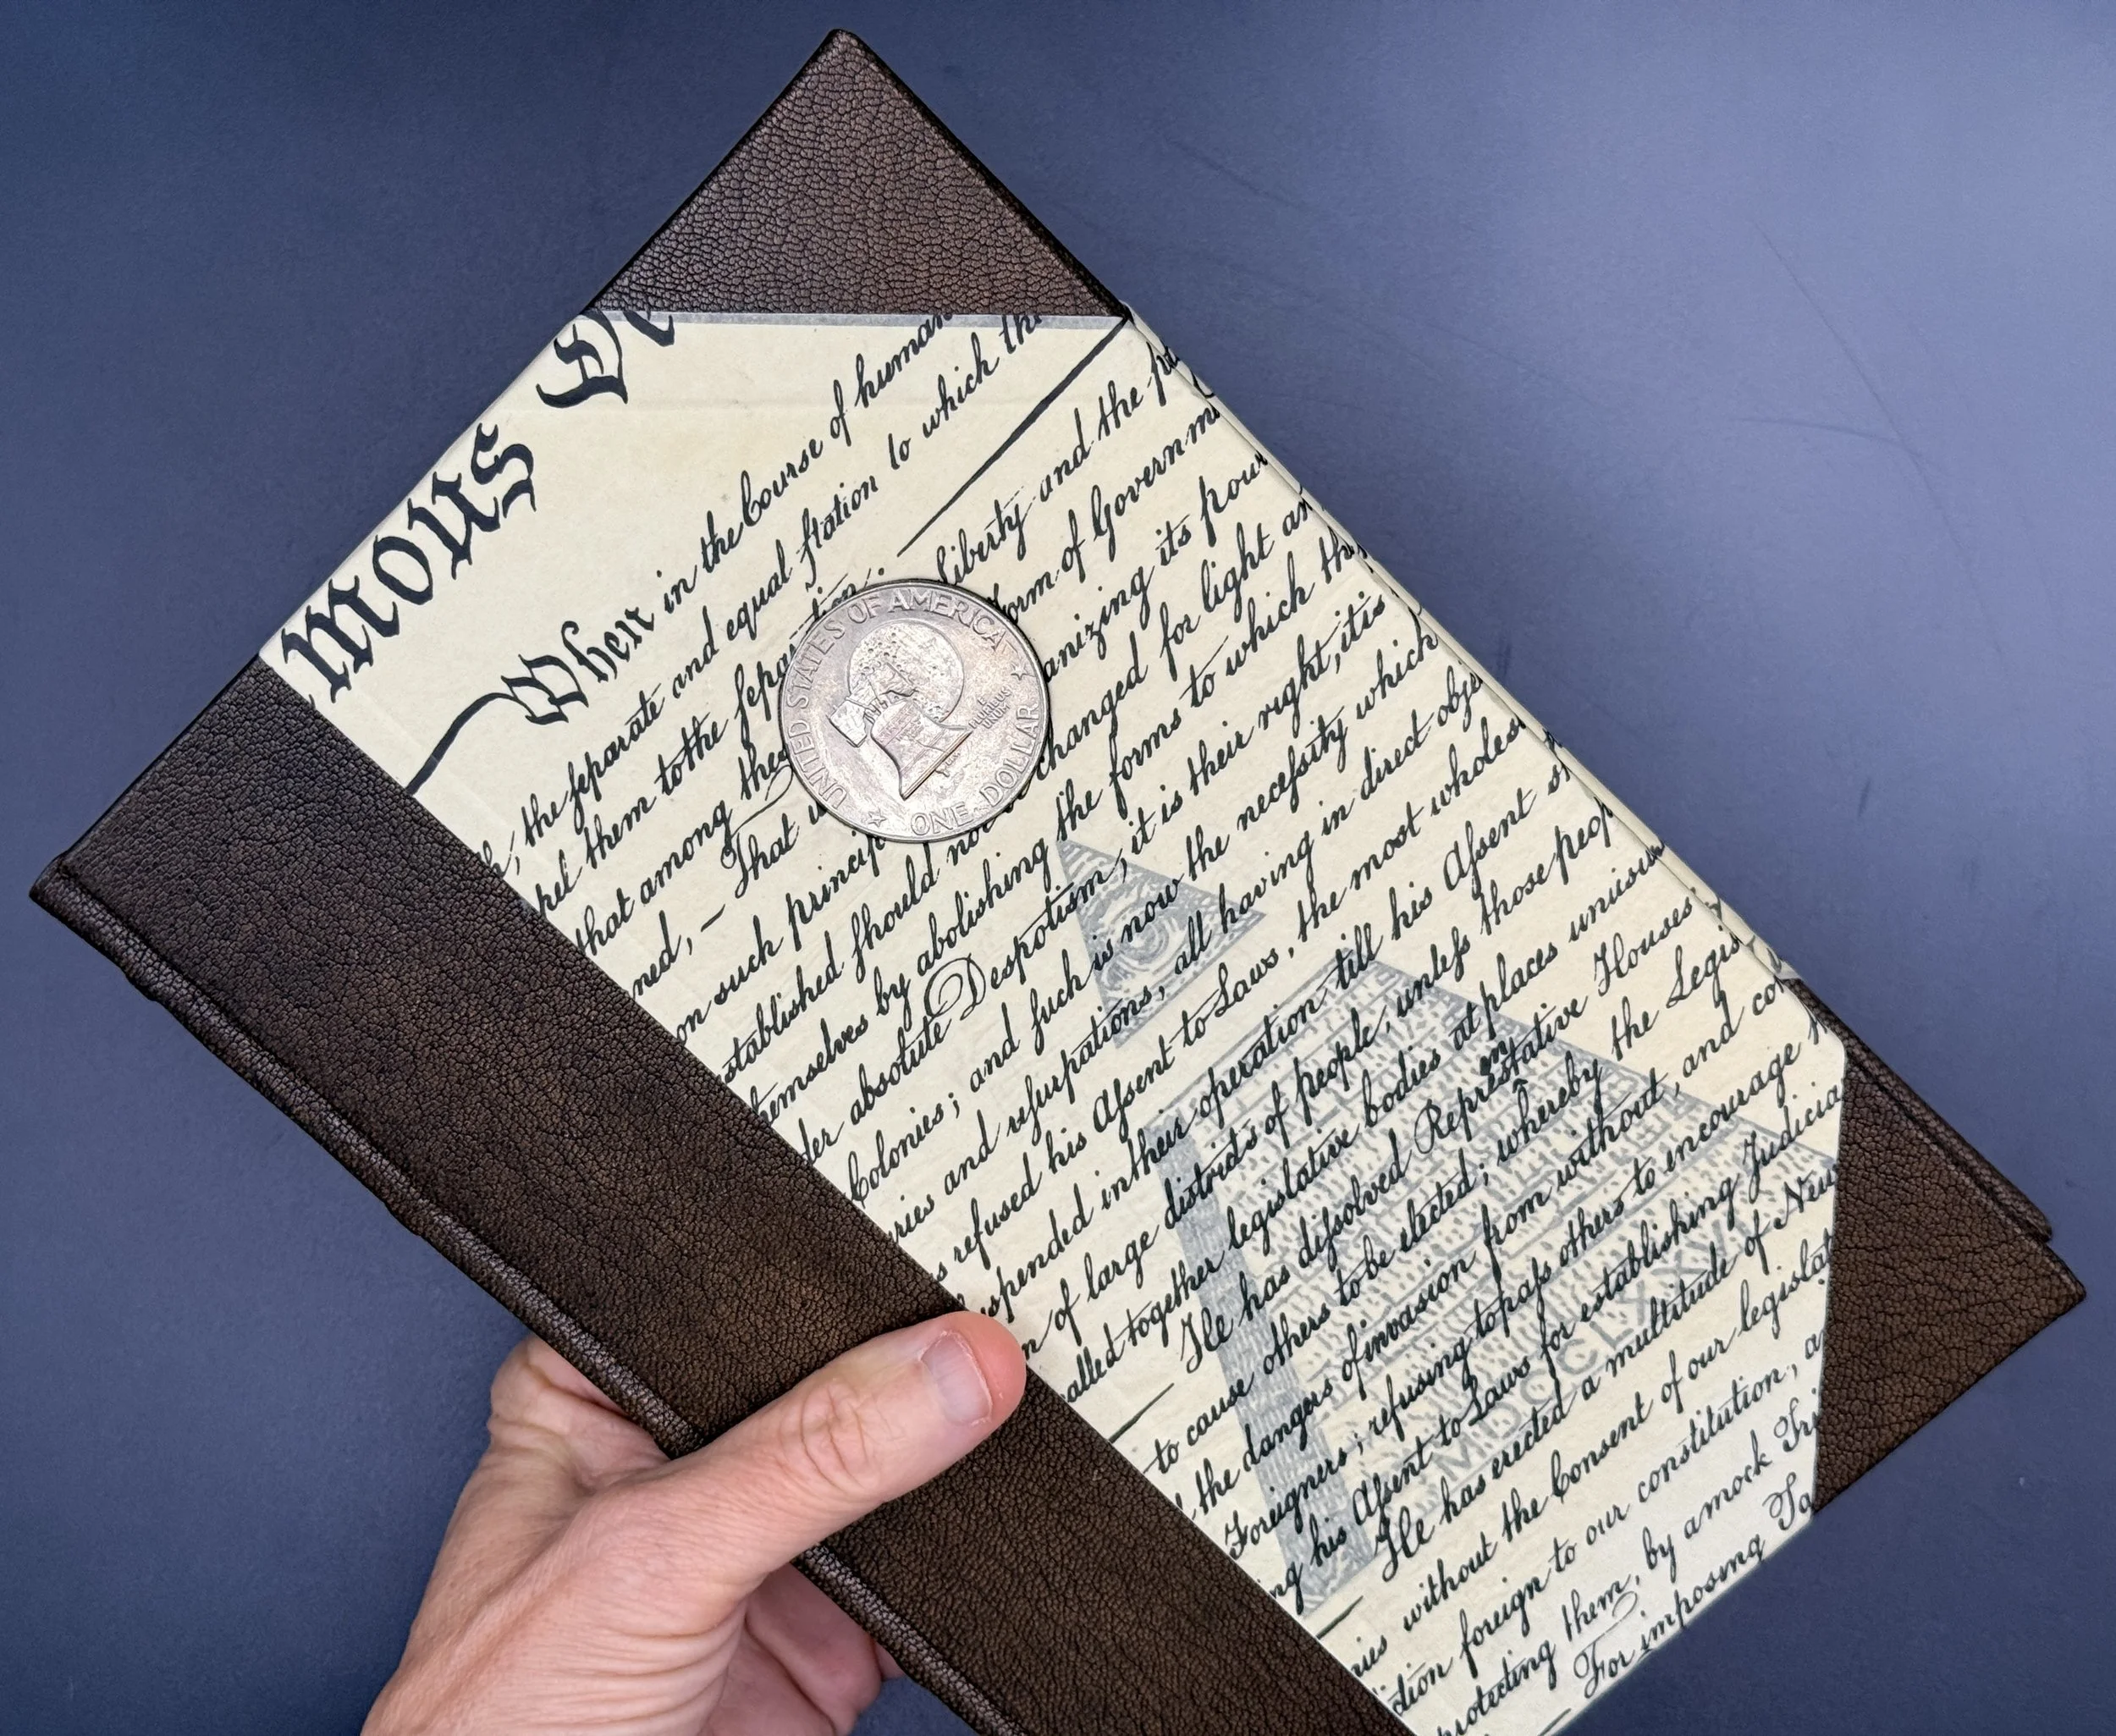 mous De
When in the Course of human
the separate and equal station to which the
them to the separation.
that among these liberty and the
ned, — That form of Governm
on such princip anizing its pow
established should not changed for light an
themselves by abolishing the forms to which th
der absolute Despotism, it is their right, it is
Colonies; and such is now the necessity which
ries and usurpations, all having in direct obje
s refused his Assent to Laws, the most wholes
spended in their operation till his Assent s
n of large districts of people, unless those peop
called together legislative bodies at places unusu
He has dissolved Representative Houses
to cause others to be elected; whereby the Legis
the dangers of invasion from without, and co
Foreigners; refusing to pass others to encourage
ng his Assent to Laws for establishing Judicia
He has erected a multitude of New
ries without the Consent of our legislat
diction foreign to our constitution, a
protecting them, by a mock Tri
For imposing Ta
UNITED STATES OF AMERICA
E PLURIBUS
UNUM
ONE DOLLAR
MDCCLXXVI